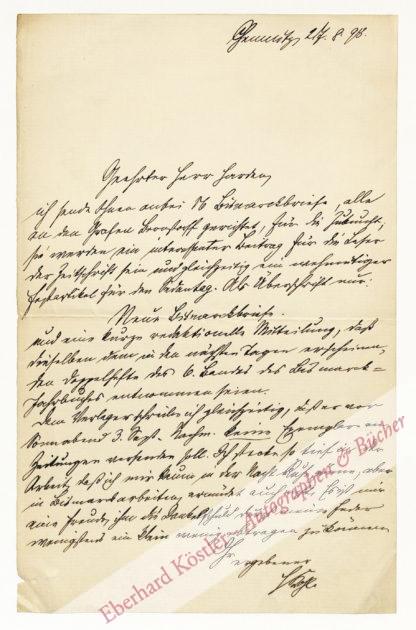 Chemnitz, 27. 8. 98.
Geehrter Herr Harden,
ich sende Ihnen anbei 16 Bismarckbriefe, alle
an den Grafen Bernstorff gerichtet, für die Zukunft,
sie werden ein interessanter Beitrag für die Leser
der Zeitschrift sein und gleichzeitig ein
Festartikel für den Sedantag. Als Überschrift nur:
Neue Bismarckbriefe.
und eine kurze redaktionelle Mitteilung, daß
dieselben dem in den nächsten Tagen erscheinen-
den Doppelhefte des 6. Bandes des Bismarck=
Jahrbuches entnommen seien.
Dem Verleger schreibe ich gleichzeitig, daß er vor
Sonnabend 3. Sept. Nachm. keine Exemplare an
Zeitungen versenden soll. Ich stecke so tief in der
Arbeit, daß ich mir kaum in der Nacht Ruhe gönne, aber
in Bismarckarbeiten ermüdet auch nicht, es ist mir
eine Freude, ihm die Dankesschuld mit meiner Feder
wenigstens ein klein wenig abtragen zu können.
Ihr
ergebener
HKohl.
Eberhard Köstler Autographen & Bücher